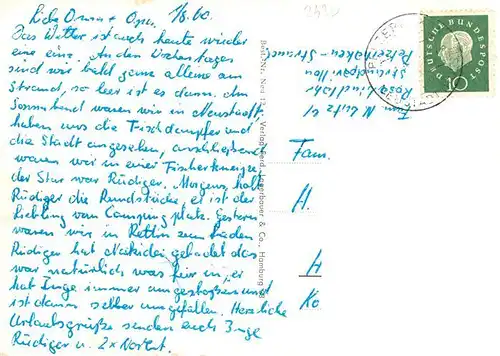 Liebe Oma + Opa, 1/8.60.
Das Wetter ist auch heute wieder
eine eins. An den Wochentagen
sind wir bald ganz alleine am
Strand, so leer ist es dann. Am
Sonnabend waren wir in Neustadt,
haben uns die Fischdampfer und
die Stadt angesehen, anschließend
waren wir in einer Fischerkneipe
der Star war Rüdiger. Morgens holt
Rüdiger die Rundstücke, er ist der
Liebling vom Campingplatz. Gestern
waren wir in Rettin zum Baden
Rüdiger hat gebadet das
war natürlich was für in, er
hat Inge immer umgestoßen und
ist dann selber umgefallen. Herzliche
Urlaubsgrüße senden euch Inge
Rüdiger u. 2x Norbert.
Verlag Ferd. Lagerbauer & Co., Hamburg
Fam.
H.
H
Ko
Strandpavillon
Pelzerhaken - Strand
DEUTSCHE BUNDESPOST
10